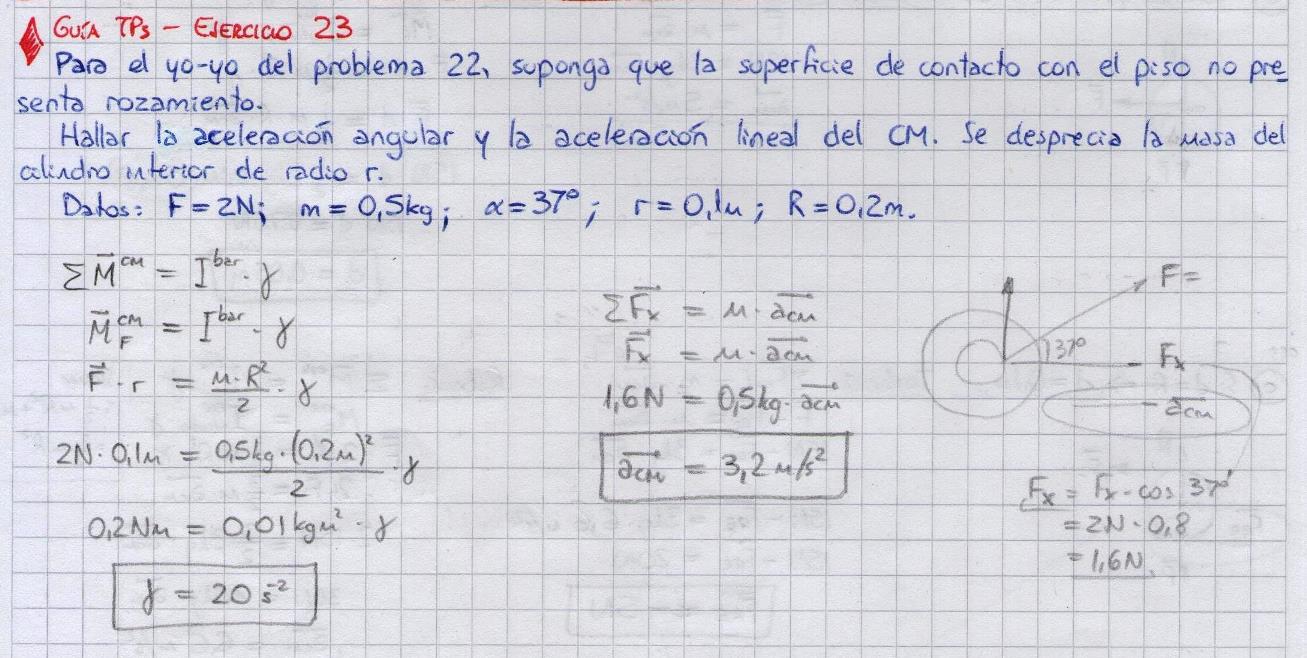 GUÍA TPs - EJERCICIO 23
Para el yo-yo del problema 22, suponga que la superficie de contacto con el piso no pre
senta rozamiento.
Hallar la aceleración angular y la aceleración lineal del CM. Se desprecia la masa del
cilindro interior de radio r.
Datos: F = 2N; m = 0,5kg; α = 37º; r = 0,1m; R = 0,2m.
∑M⃗ᶜᴹ = Iᵇᵃʳ · γ
M⃗ꜰᶜᴹ = Iᵇᵃʳ · γ
F⃗ · r = m·R²/2 · γ
2N · 0,1m = 0,5kg·(0,2m)²/2 · γ
0,2Nm = 0,01kgm² · γ
γ = 20 s⁻²
∑F⃗x = m · a⃗cm
F⃗x = m · a⃗cm
1,6N = 0,5kg · a⃗cm
a⃗cm = 3,2 m/s²
F=
37º
Fx
a⃗cm
Fx = Fx · cos 37º
= 2N · 0,8
= 1,6N